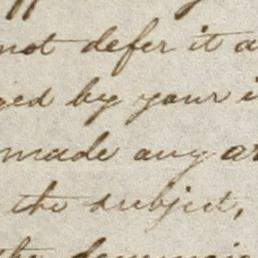 not defer it a
ged by your i
made any ar
the subject,
the